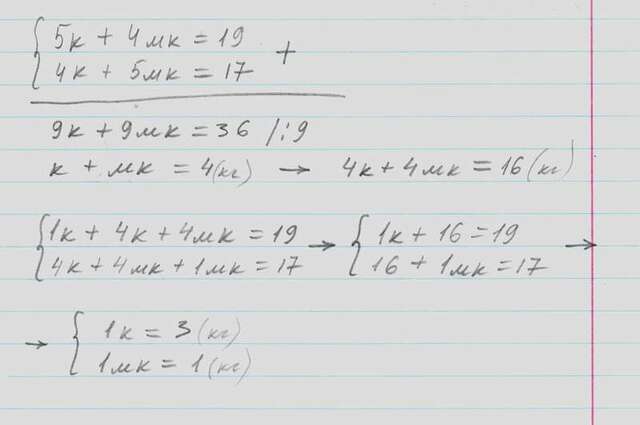 5к + 4мк = 19
4к + 5мк = 17 +
9к + 9мк = 36 /:9
к + мк = 4(кг) → 4к + 4мк = 16(кг)
1к + 4к + 4мк = 19 → 1к + 16 = 19 →
4к + 4мк + 1мк = 17 16 + 1мк = 17
→ 1к = 3 (кг)
1мк = 1 (кг)